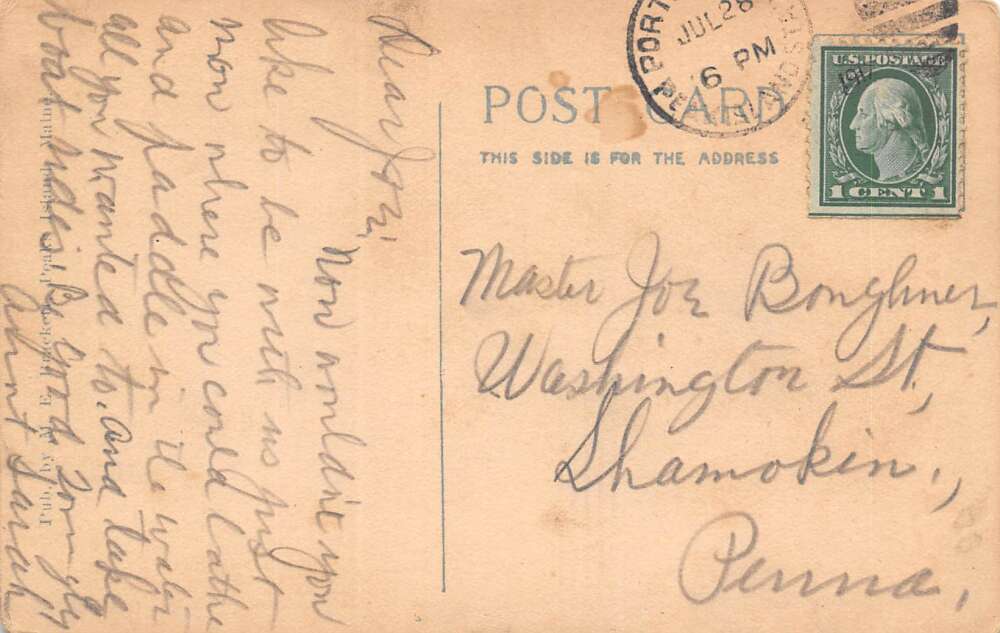 POST CARD
THIS SIDE IS FOR THE ADDRESS
PORT
JUL 28
6 PM
U.S. POSTAGE
1 CENT 1
Dear Joe,
Now wouldn't you
like to be with us just
now where you could bathe
and paddle in the water
all you wanted to. and take
boat rides! Be good
Aunt Sarah
Master Joe Boughner,
Washington St.,
Shamokin,
Penna,